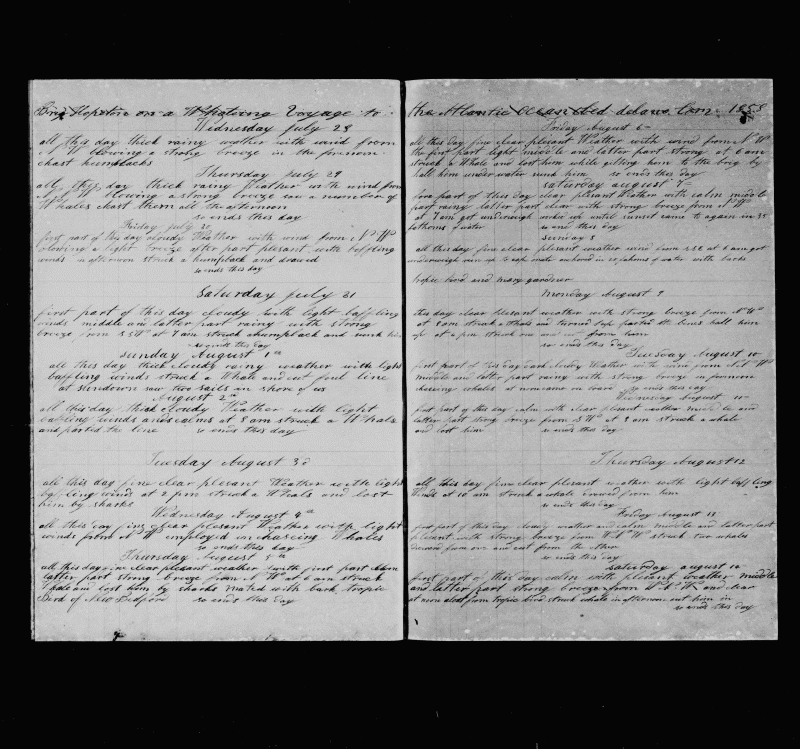 Brig Hopeton on a Whaleing Voyage to
Wednesday July 28
all this day thick rainy weather with wind from
N W blowing a strong breeze in the forenoon
chast humpbacks
Thursday July 29
all this day thick rainy Weather with wind from
blowing a strong breeze saw a number of
Whales chast them all the afternoon
so ends this day
Friday July 30
first part of this day cloudy Weather with wind from N W
blowing a light breeze after part plesant with baffling
winds in afternoon struck a humpback and drawed
so ends this day
Saturday July 31
first part of this day cloudy with light baffling
winds middle and latter part rainy with strong
breeze from S S W at 7 am struck a humpback and sunk him
so ends this day
Sunday August 1st
all this day thick cloudy rainy weather with light
baffling winds struck a Whale and cut foul line
at sundown saw two sails on shore of us
August 2nd
all this day thick cloudy Weather with light
baffling winds and calms at 8 am struck a Whale
and parted the line so ends this day
Tuesday August 3d
all this day fine clear plesant Weather with light
baffling winds at 2 pm struck a Whale and lost
him by sharks
Wednesday August 4th
all this day fine clear plesant Weather with light
winds from N W employed in chaseing Whales
so ends this day
Thursday August 5th
all this day fine clear plesant weather with first part calm
latter part strong breeze from N W at 6 am struck
Whale and lost him by sharks mated with bark tropic
Bird of New Bedford so ends this day
the Atlantic Ocean 1858
Friday August 6
all this day fine clear plesant Weather with wind from N W
the first part light middle and latter part strong at 6 am
struck a Whale and lost him while giting him to the brig by
hall him under water sunk him so ends this day
saturday august 7
fore part of this day clear plesant Weather with calm middle
part rainy latter part clear with strong breeze from N W
at 7 am got underweigh until sunset came to again in 35
fathoms of water so ends this day
sunday 8
all this day fine clear plesant weather wind from SSE at 6 am got
underweigh run up to cape anchored in 20 fathoms of water with barks
tropic bird and mary gardner
Monday August 9
this day clear plesant weather with strong breeze from N W
at 8 am struck a Whale and turned parted the lines hall him
up at 2 pm struck one and drawed from him
so ends this day
Tuesday August 10
first part of this day dark cloudy Weather with wind from N W
middle and latter part rainy with strong breeze in forenoon
chaseing whales at noon came on board so ends this day
Wednesday August 11
first part of this day calm with clear plesant weather middle and
latter part strong breeze from S W at 8 am struck a whale
and lost him so ends this day
Thursday August 12
all this day fine clear plesant weather with light baffling
Winds at 10 am struck a whale drawed from him
so ends this day
Friday August 13
first part of this day cloudy weather and calm middle and latter part
plesant with strong breeze from W N W struck two whales
drawed from one and cut from the other
so ends this day
saturday august 14
first part of this day calm with plesant weather middle
and latter part strong breeze from W N W and clear
at noon aloat from tropic bird struck whale in afternoon cut him in
so ends this day